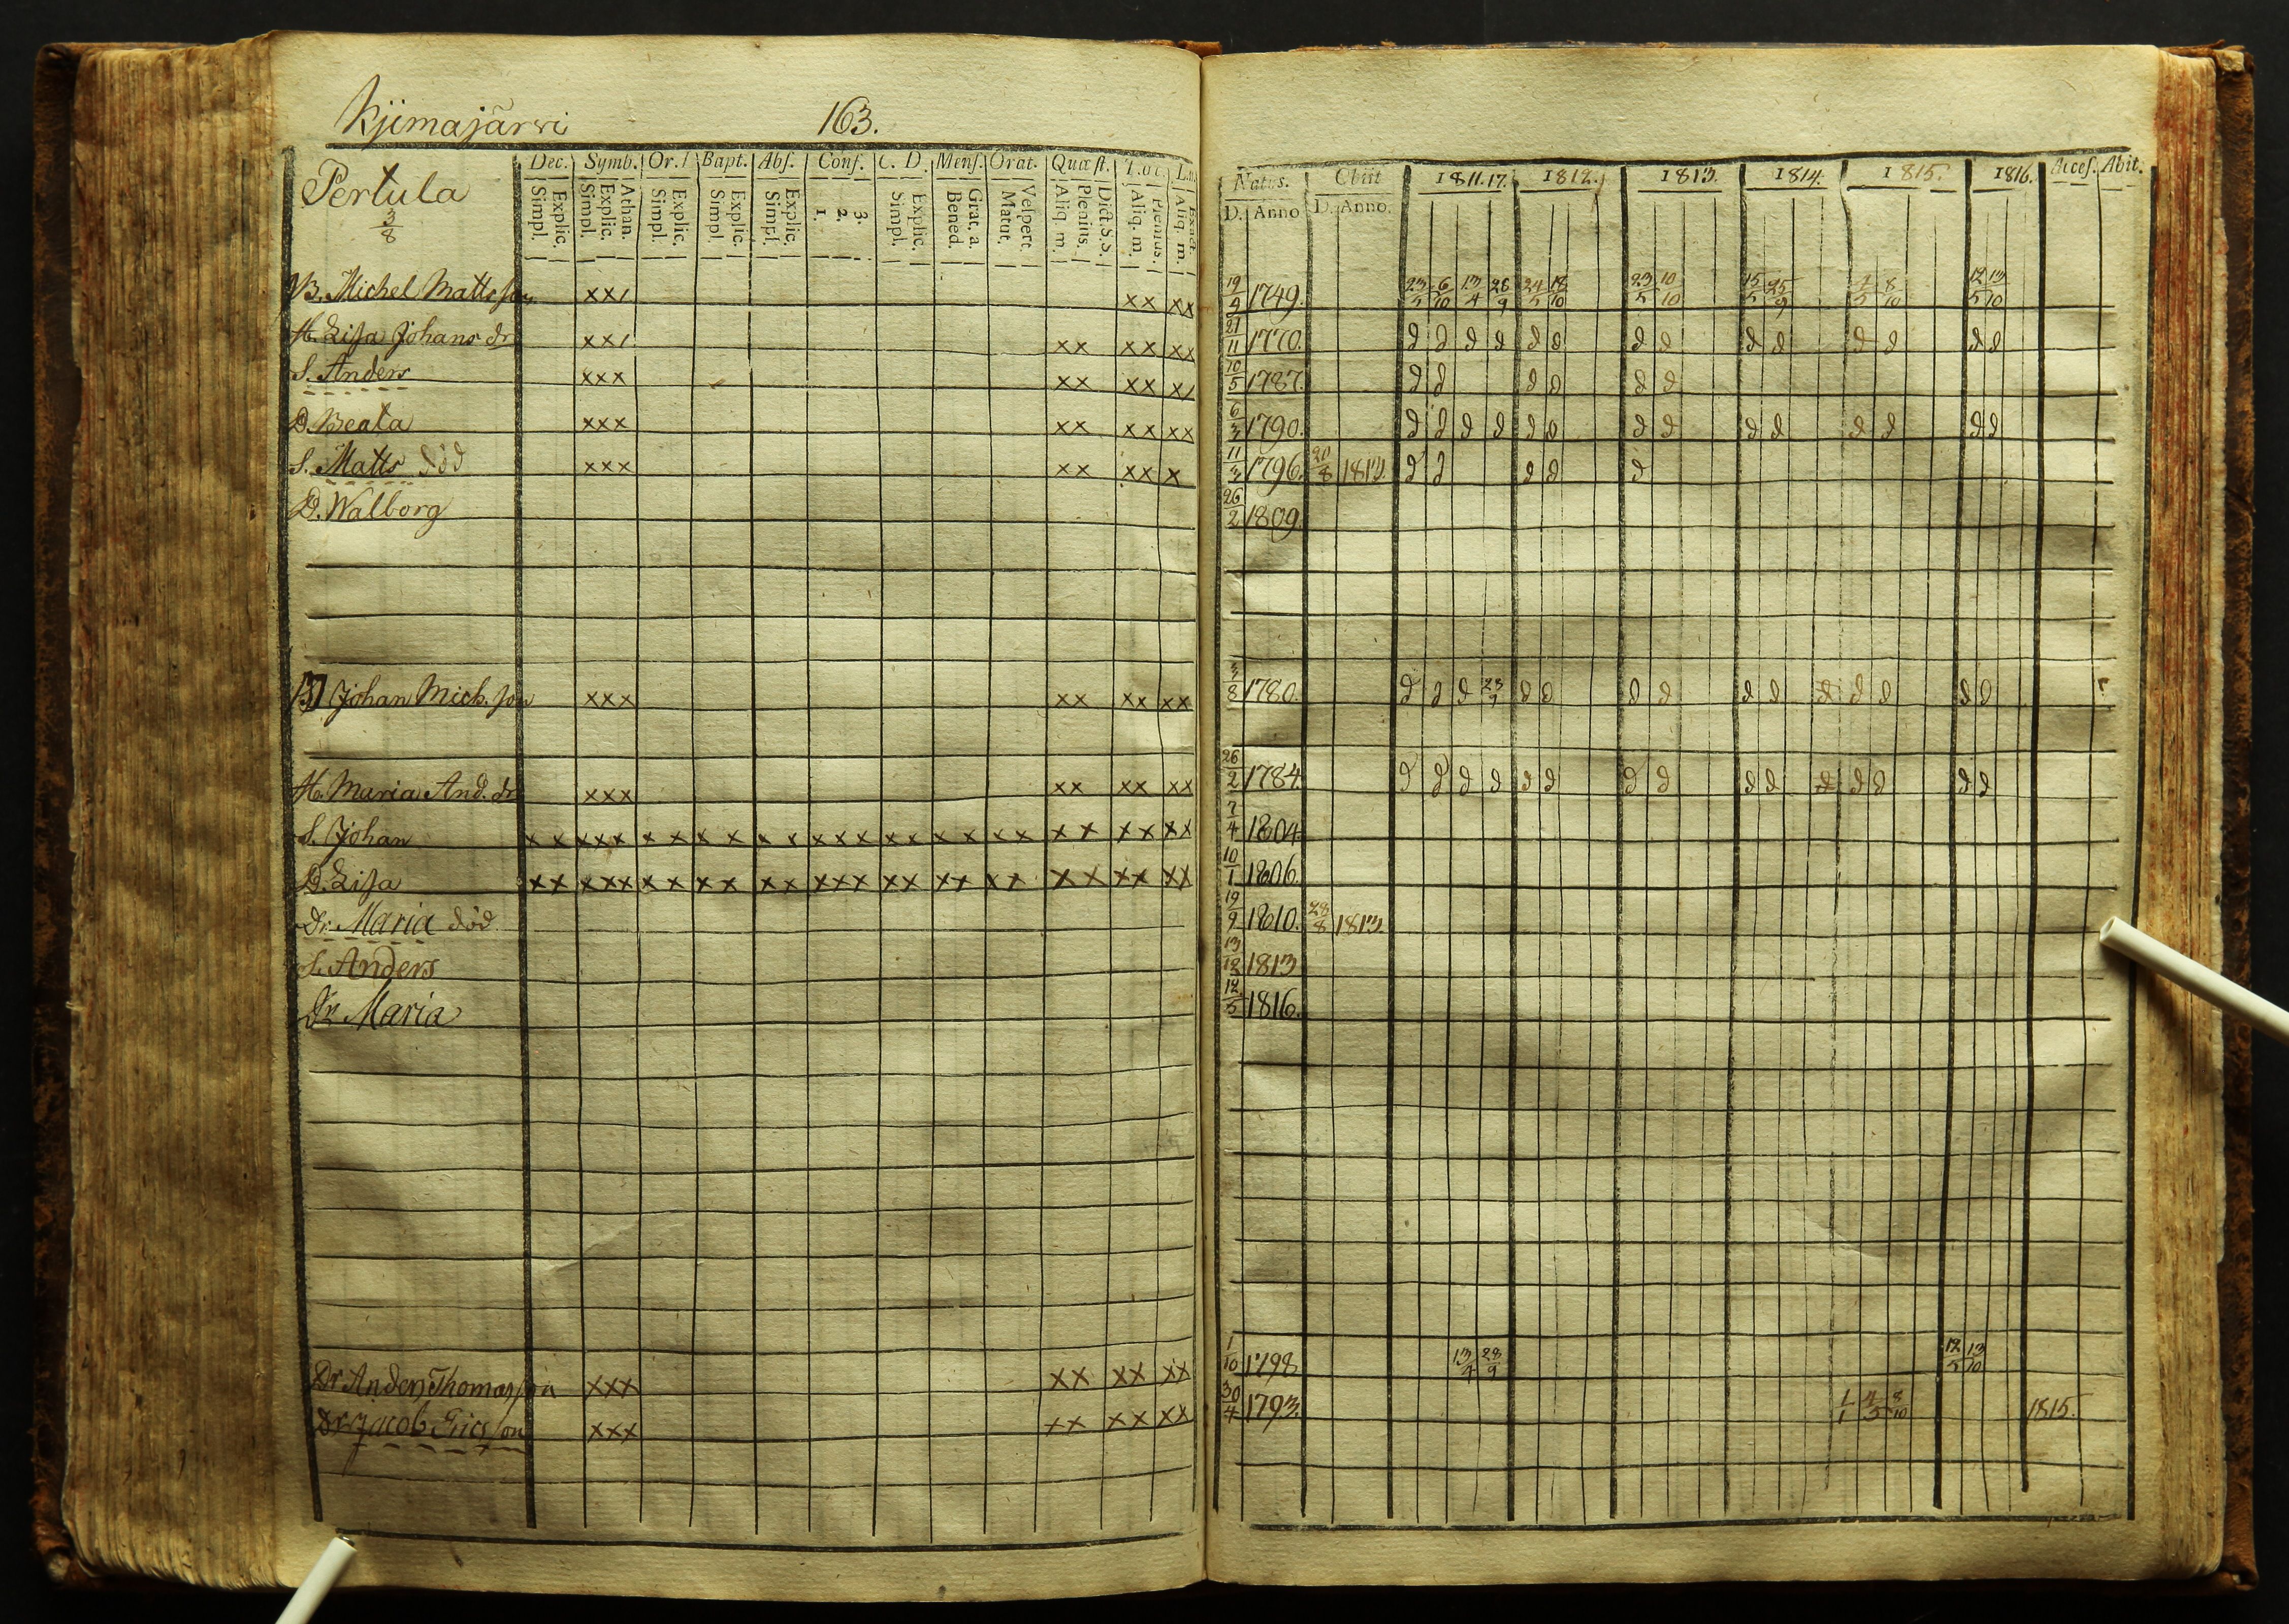 Kjimajärvi 163.
Dec. Symb. Or. Bapt. Abs. Conf. C. D. Mens. Orat. Quæst. Loc.
Pertula
3/8
Explic. Simpl. Athan. Explic. Simpl. Explic. Simpl. Explic. Simpl. Explic. Simpl. 3. 2. 1. Explic. Simpl. Grat. a. Bened. Vespert. Matut. Dict. S.S. Plenius. Aliq. m. Plenius. Aliq. m. Exact. Aliq. m.
Natus. Obiit 1811.17. 1812. 1813. 1814. 1815. 1816. Acces. Abit.
D. Anno D. Anno.
B. Michel Mattsson xx/ xx xx 19/9 1749. 23/5 6/10 13/4 28/9 24/5 18/10 23/5 10/10 15/5 25/9 4/5 8/10 12/5 13/10
H. Lisa Johans dr xx/ xx xx xx 21/11 1770. d d d d d d d d d d d d d d
S. Anders xxx xx xx x/ 10/5 1787. d d d d d d
D. Beata xxx xx xx xx 6/3 1790. d d d d d d d d d d d d d d
S. Matts död xxx xx xx x 11/3 1796. 20/8 1813. d d d d d
D. Walborg 26/2 1809.
B Johan Mich. son xxx xx xx xx 3/8 1780. d d d 28/9 d d d d d d d d d d
H. Maria And. dr xxx xx xx xx 26/2 1784. d d d d d d d d d d d d d d
S. Johan xx xxx xx xx xx xxx xx xx xx xx xx xx 7/4 1804.
D. Lisa xx xxx xx xx xx xxx xx xx xx xx xx xx 10/1 1806.
Dr Maria död. 19/9 1810. 28/8 1813.
S. Anders 13/12 1813
Dr Maria 12/5 1816.
Dr Anders Thomasson xxx xx xx xx 1/10 1798 13/4 28/9 12/5 13/10
Dr Jacob Ericsson xxx xx xx xx 30/4 1793. 1/1 4/5 8/10 1815.